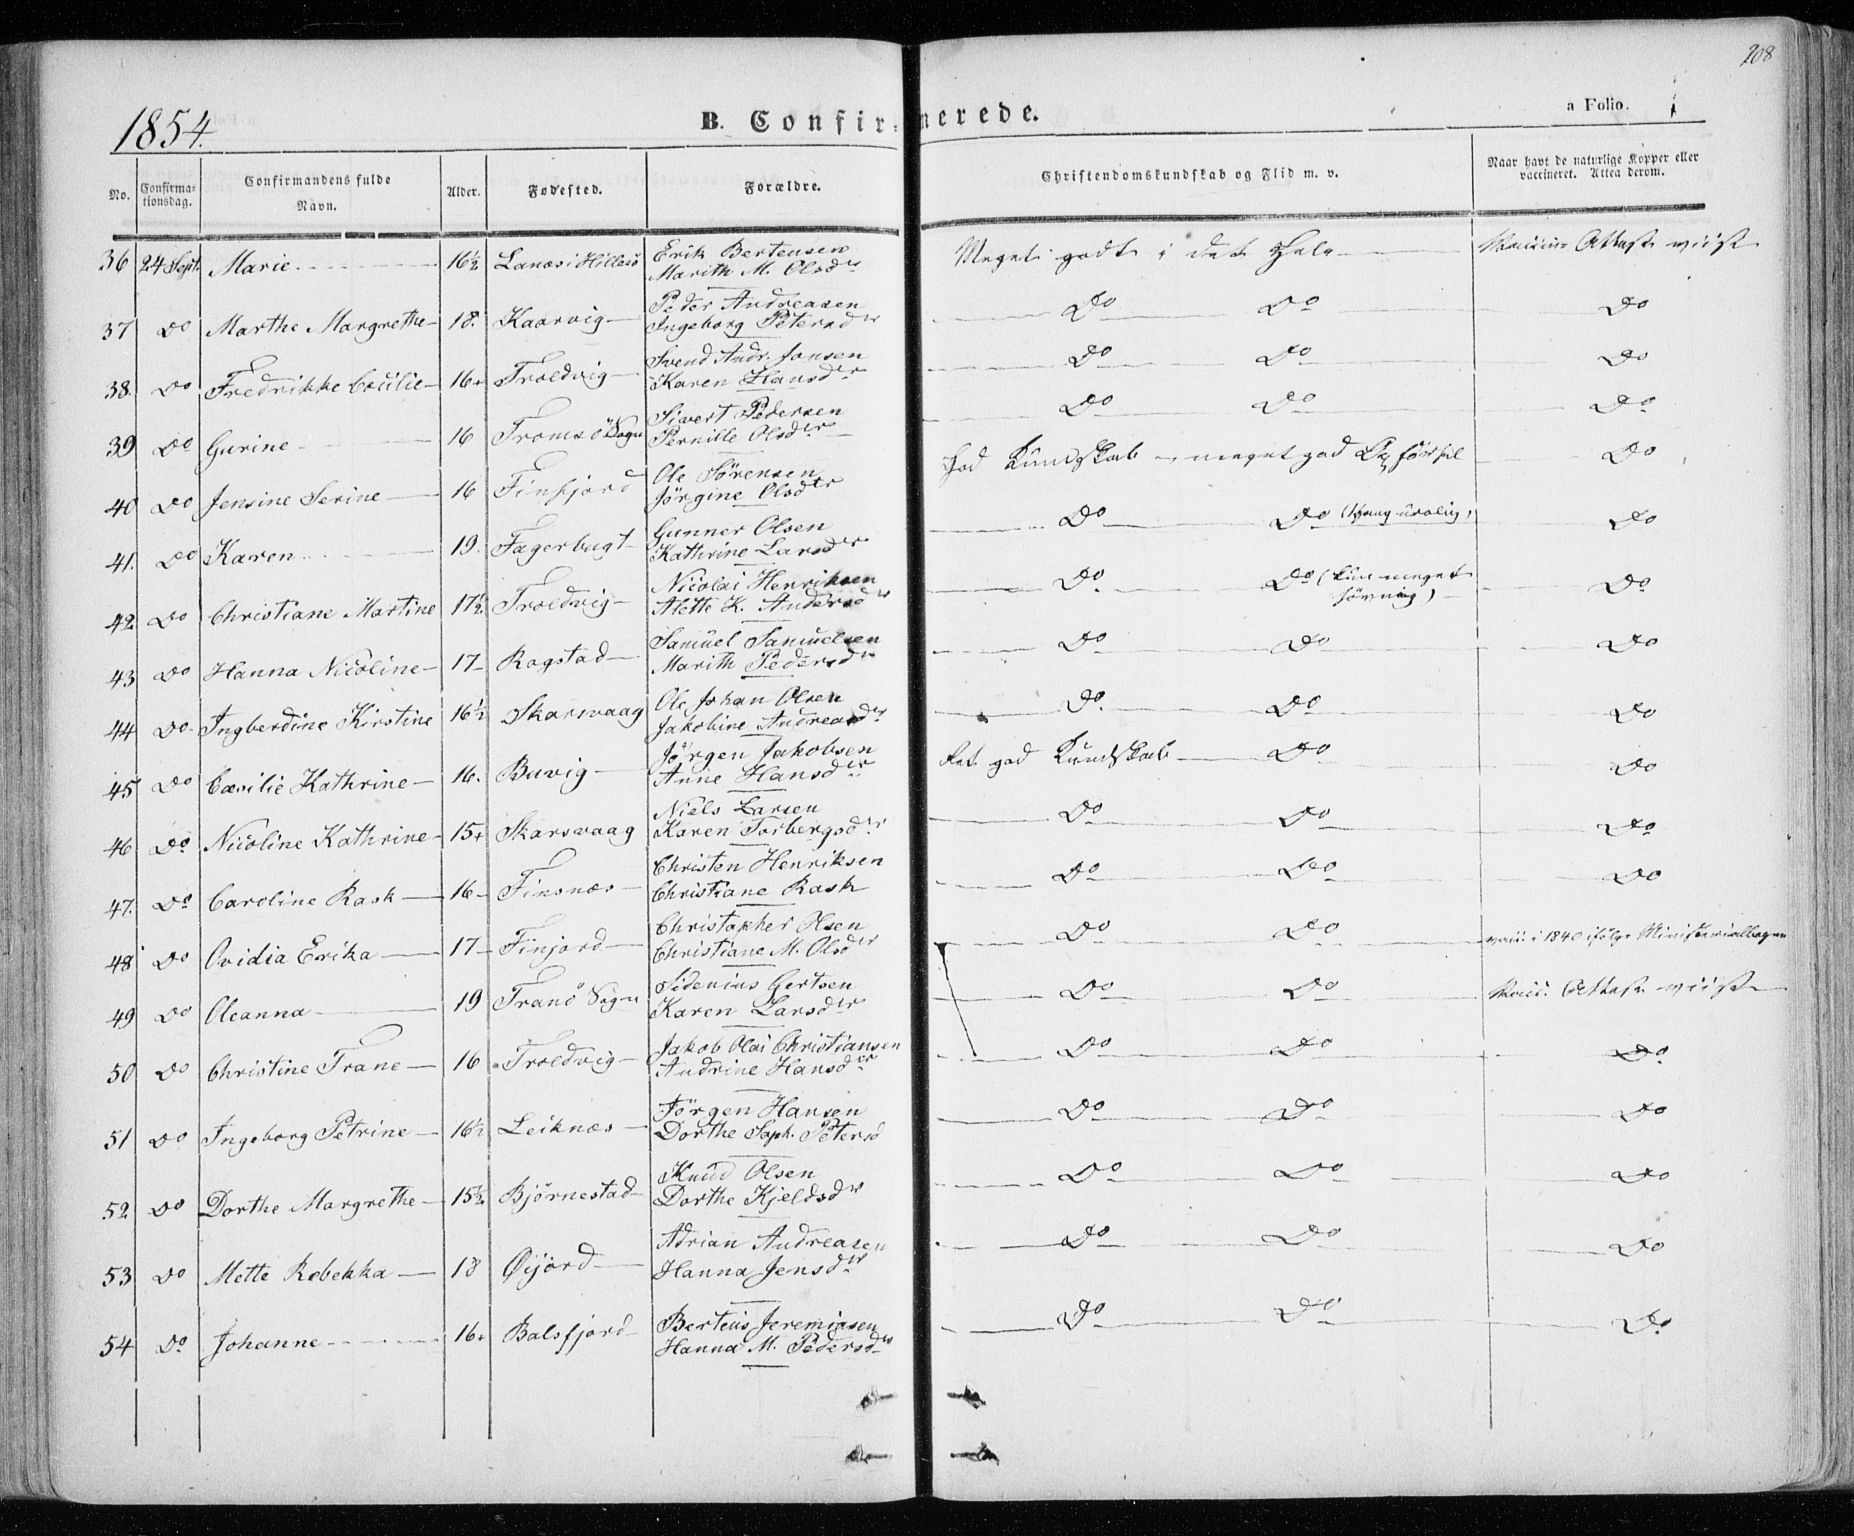 208
1854.
B. Confirmerede.
a Folio.
No. Confirmationsdag. Confirmandens fulde Navn. Alder. Fødested. Forældre. Christendomskundskab og Flid m. v. Naar havt de naturlige Kopper eller vaccineret. Attest derom.
36 24 Sept. Marie 16½ Lanæs i Hillesø Erik Bertensen Meget godt i det Hele Attest viist
Marith M. Olsdr
37 Do Marthe Margrethe 18. Kaarvig Peder Andreasen Do Do Do
Ingeborg Petersdr
38. Do Fredrikke Cecilie 16 Troldvig Svend Andr. Jonsen Do Do Do
Karen Hansdr
39 Do Gurine 16 Tromsö Sogn Sivert Pedersen Do Do Do
Pernille Olsdr
40 Do Jensine Serine 16 Finfjord Ole Sörensen God Kundskab meget god Opförsel Do
Jörgine Olsdtr
41. Do Karen 19. Fagerbugt Gunner Olsen Do Do Do
Kathrine Larsdr
42 Do Christiane Martine 17½ Troldvig Nicolai Henriksen Do Do (kun meget Do
Alette K. Andersdr
43 Do Hanna Nicoline 17 Rogstad Samuel Samuelsen Do Do Do
Marith Pedersdr
44 Do Ingberdine Kirstine 16½ Skarsvaag Ole Johan Olsen Do Do Do
Jakobine Andreasdr
45 Do Cæcilie Kathrine 16. Buvig Jörgen Jakobsen Ret god Kundskab Do Do
Anne Hansdr
46 Do Nicoline Kathrine 15 Skarsvaag Niels Larsen Do Do Do
Karen Torbergsdr
47. Do Caroline Rask 16 Finsnæs Christen Henriksen Do Do Do
Christiane Rask
48 Do Ovidia Erika 17 Finjord Christopher Olsen Do Do vacc. i 1840 ifølge Ministerialbogen
Christiane M. Olsdr
49 Do Oleanna 19 Tranö Sogn Sidenius Gertsen Do Do Vacc. Attest viist
Karen Larsdr
50 Do Christine Trane 16 Troldvig Jakob Olai Christiansen Do Do Do
Andrine Hansdr
51 Do Ingeborg Petrine 16½ Leiknæs Jörgen Hansen Do Do Do
Dorthe Soph. Petersd
52 Do Dorthe Margrethe 15½ Bjørnestad Knud Olsen Do Do Do
Dorthe Kjeldsdr
53 Do Mette Rebekka 18 Øijord Adrian Andreasen Do Do Do
Hanna Jensdr
54 Do Johanne 16 Balsfjord Berteus Jeremiasen Do Do Do
Hanna M. Pedersdr